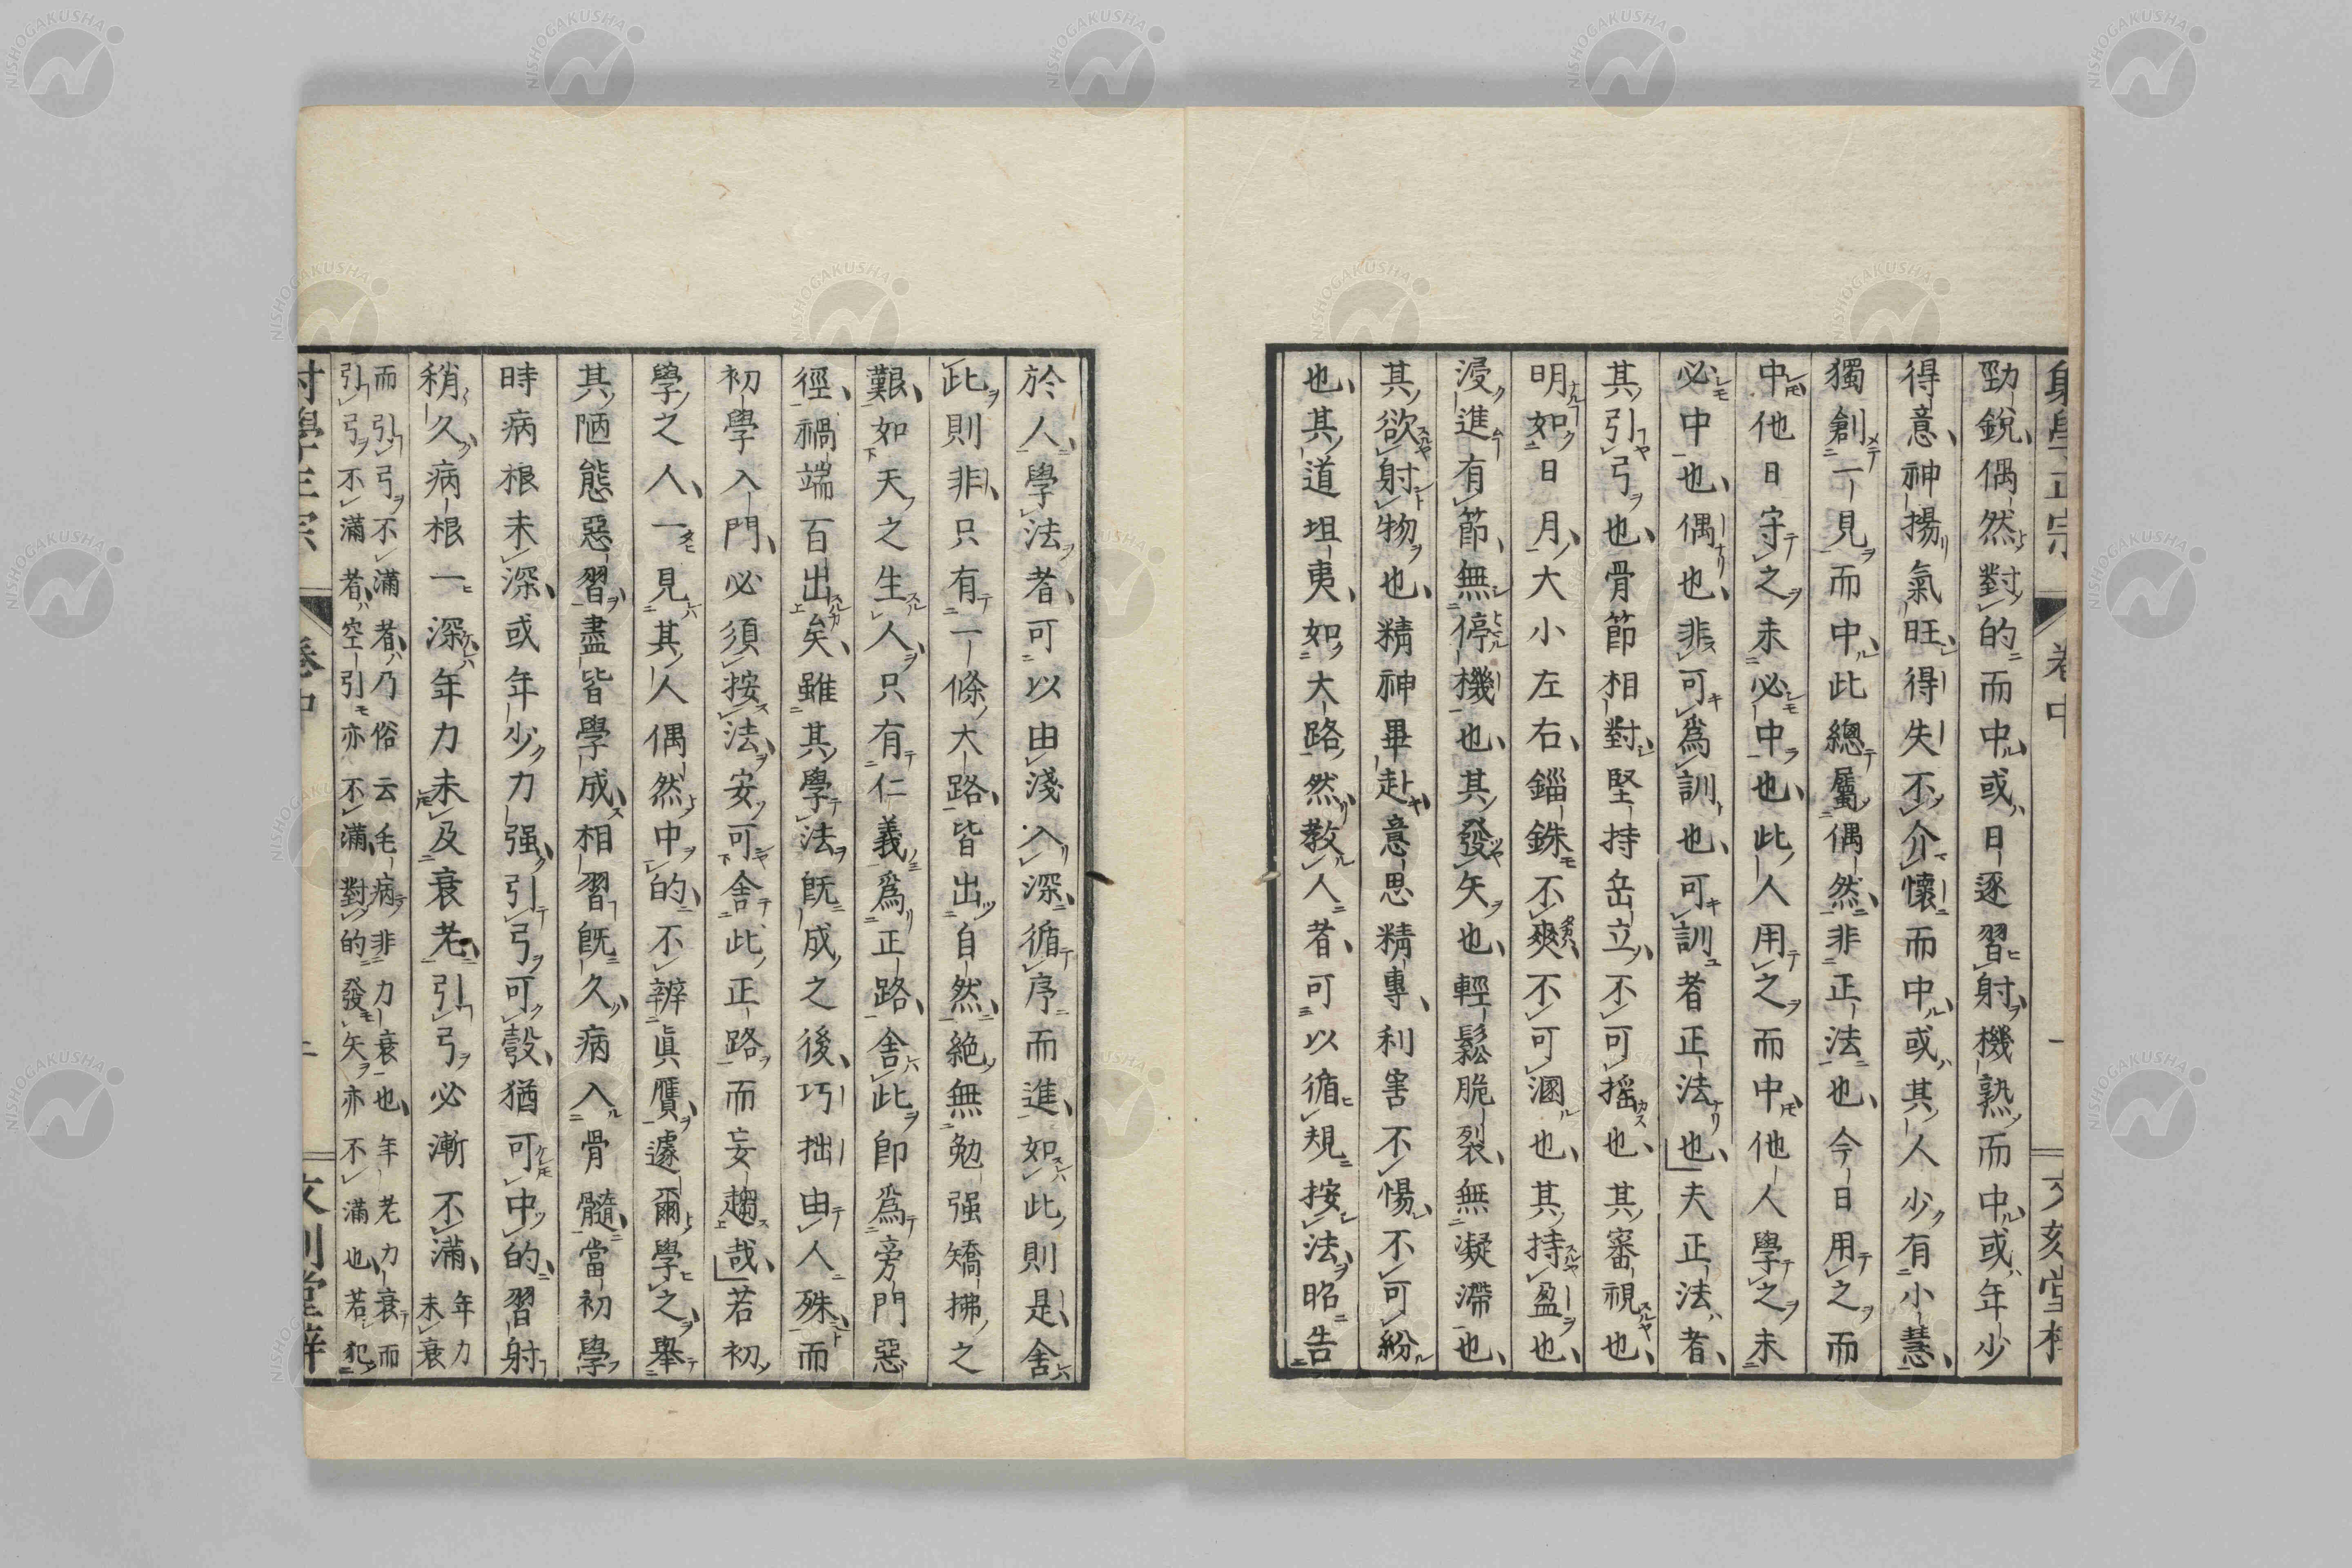 勁銳偶然對的而中或日逐習射機熟而中或年少
得意神揚氣旺得失不介懷而中或其人少有小慧
獨創一見而中此總屬偶然非正法也今日用之而
中他日守之未必中也此人用之而中他人學之未
必中也偶也非可爲訓也可訓者正法也夫正法者
其引弓也骨節相對堅持岳立不可搖也其審視也
明如日月大小左右錙銖不爽不可溷也其持盈也
浸進有節無停機也其發矢也輕鬆脆裂無凝滯也
其欲射物也精神畢赴意思精專利害不惕不可紛
也其道坦夷如大路然教人者可以循規按法昭告
於人學法者可以由淺入深循序而進如此則是舍
此則非只有一條大路皆出自然絕無勉强矯拂之
艱如天之生人只有仁義爲正路舍此卽爲旁門惡
徑禍端百出矣雖其學法旣成之後巧拙由人殊而
初學入門必須按法安可舍此正路而妄趨哉若初
學之人一見其人偶然中的不辨眞贋遽爾學之舉
其陋態惡習盡皆學成相習旣久病入骨髓當初學
時病根未深或年少力强引弓可彀猶可中的習射
稍久病根一深年力未及衰老引弓必漸不滿
年力
未衰
而引弓不滿者乃俗云毛病非力衰也年老力衰而
引弓不滿者空引亦不滿對的發矢亦不滿也若犯